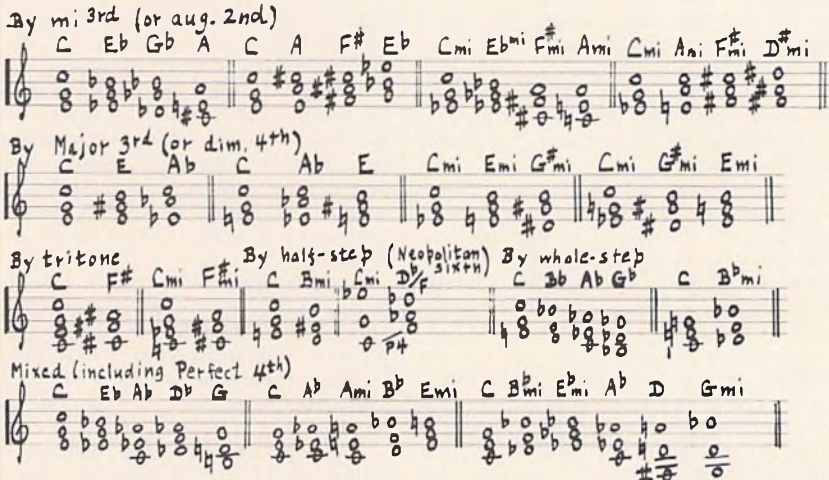 By mi 3rd (or aug. 2nd)
C Eb Gb A C A F# Eb Cmi Ebmi F#mi Ami Cmi Ami F#mi D#mi
By Major 3rd (or dim. 4th)
C E Ab C Ab E Cmi Emi G#mi Cmi G#mi Emi
By tritone By half-step (Neopolitan sixth) By whole-step
C F# Cmi F#mi C Bmi Cmi Db/F C Bb Ab Gb C Bbmi
P4
Mixed (including Perfect 4th)
C Eb Ab Db G C Ab Ami Bb Emi C Bbmi Ebmi Ab D Gmi